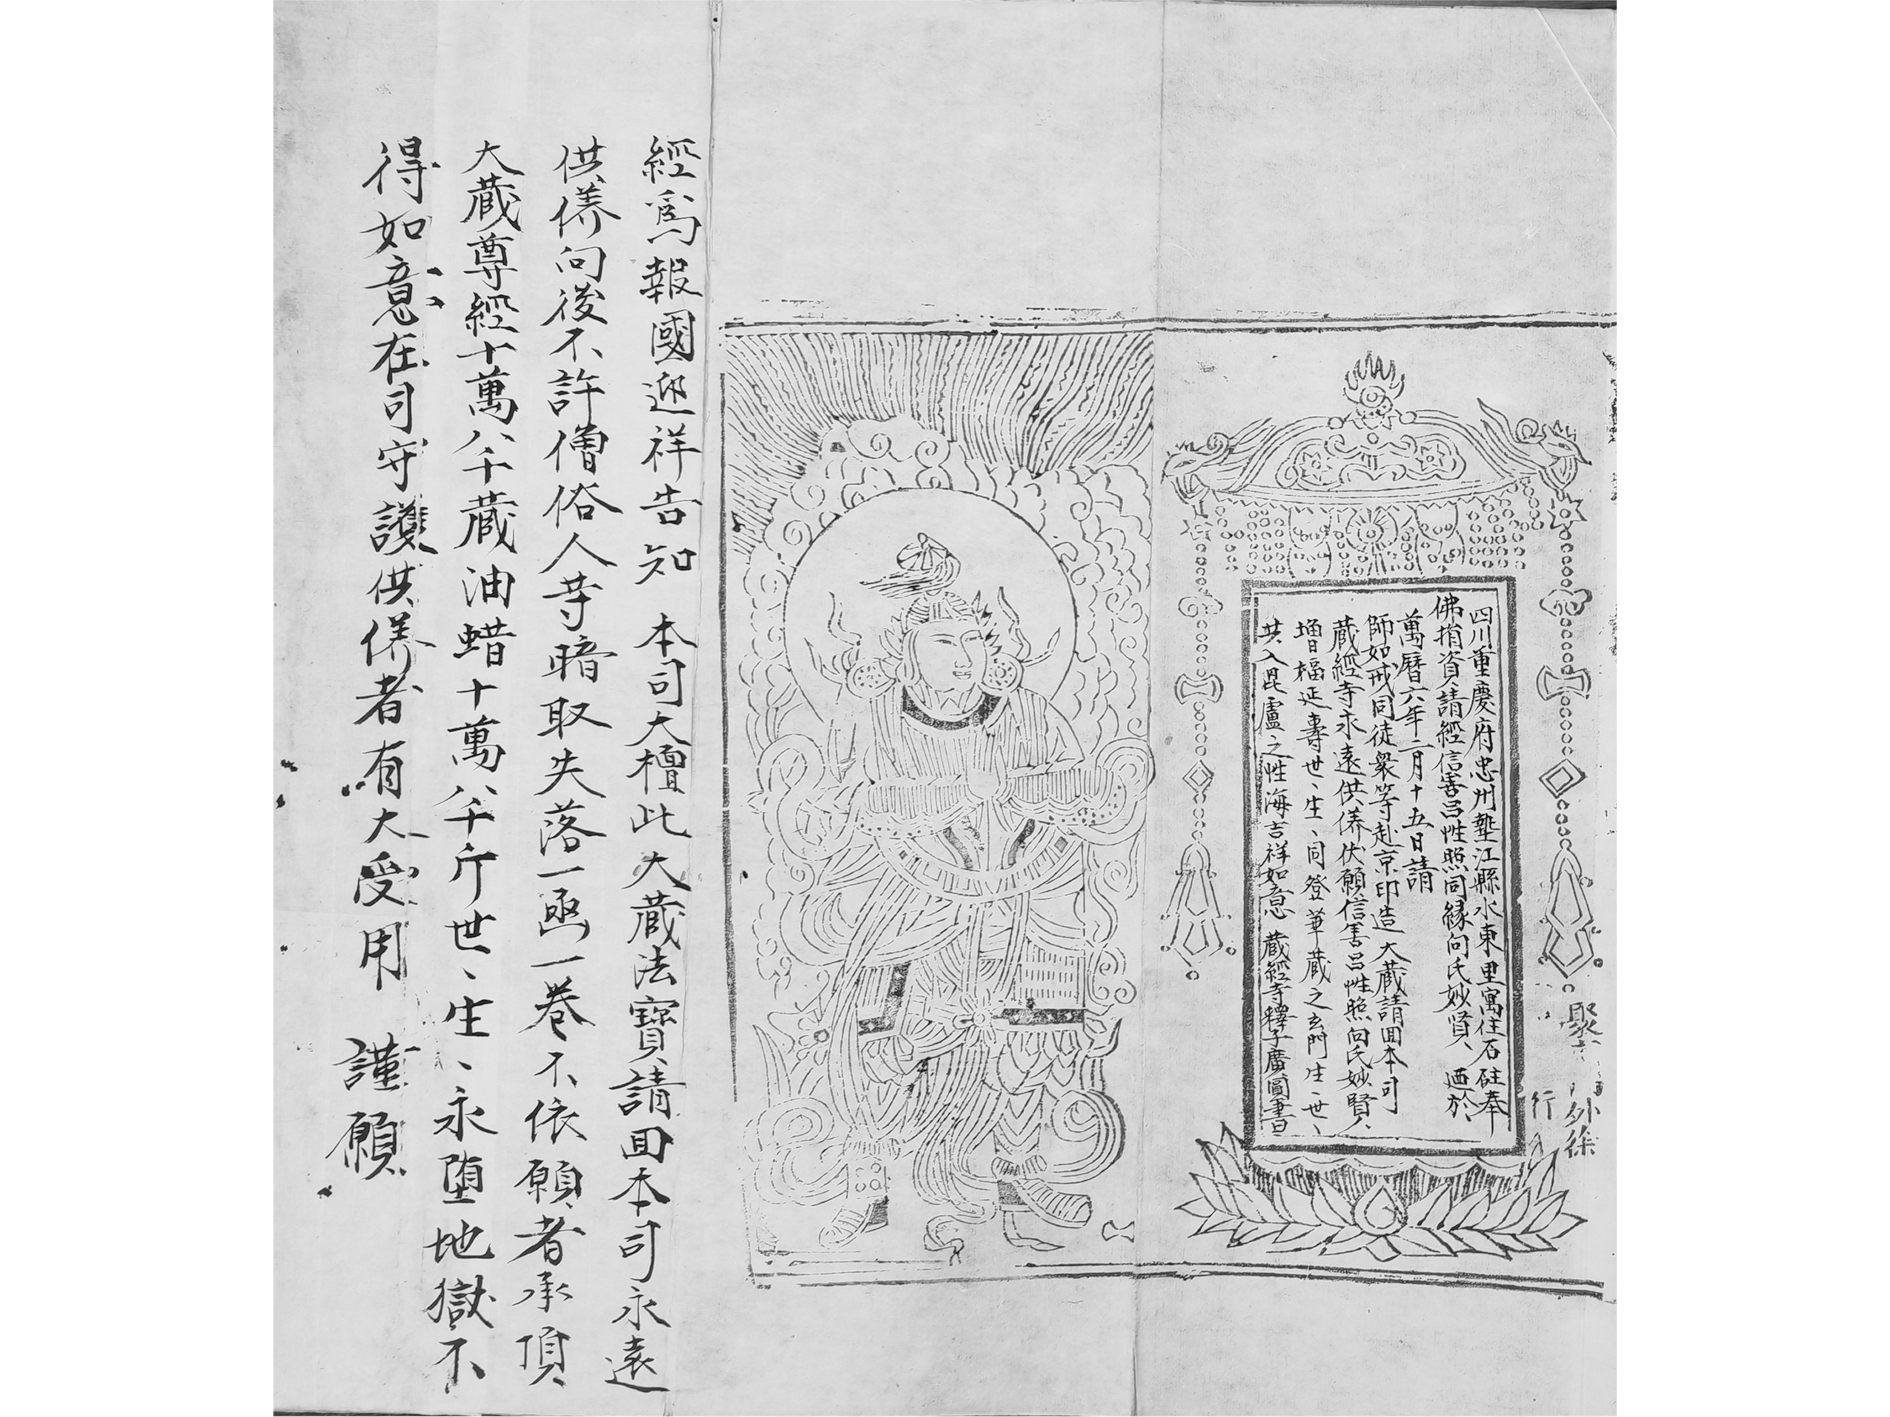 四川重慶府忠州墊江縣水東里寓住石砫奉
佛捐資請經信善呂性照同緣向氏妙賢人迺於
萬曆六年二月十五日請
師如戒同徒衆等赴京印造大藏請回本司
藏經寺永遠供养伏願信善呂性照向氏妙賢人
增福延壽世、生、同登華藏之玄門生、世、
共入毘盧之性海吉祥如意 藏經寺釋子廣圓書
經爲報國迎祥告知 本司大檀此大藏法寶請回本司永遠
供养向後不許僧俗人等暗取失落一函一卷不依願者承頂
大藏尊經十萬八千藏油蜡十萬八千斤世、生、永堕地獄不
得如意在司守護供养者有大受用 謹願